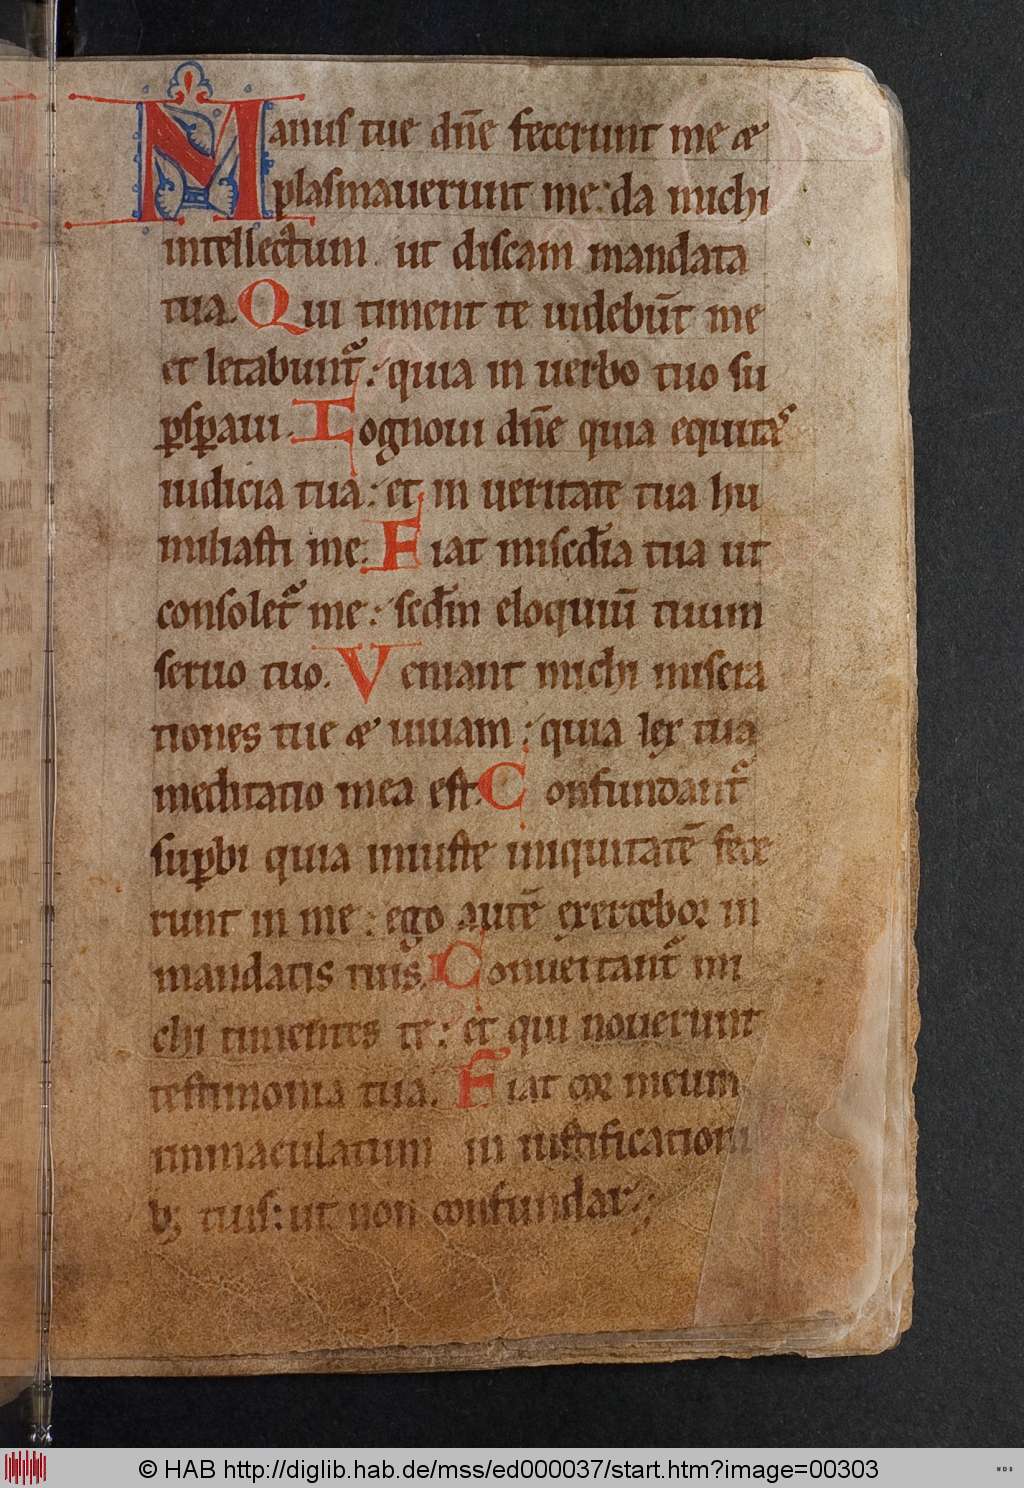 Manus tue dn̄e fecerunt me æ
plasmauerunt me: da michi
intellectum. ut discam mandata
tua. Qui timent te uidebūt me
et letabunt᷑: quia in uerbo tuo su
ꝑsꝑaui. Cognoui dn̄e quia equitas
iudicia tua: et in ueritate tua hu
miliasti me: Fiat misc̄dia tua ut
consolet᷑ me: sc̄dm eloquiū tuum
seruo tuo. Veniant michi misera
tiones tue æ uiuam: quia lex tua
meditatio mea est. Confundant᷑
suꝑbi quia iniuste iniquitatē fece
runt in me: ego autē exercebor in
mandatis tuis. Conuertant᷑ mi
chi timentes te: et qui nouerunt
testimonia tua. Fiat cor meum
immaculatum in iustificationi
bꝫ tuis: ut non confundar:
© HAB http://diglib.hab.de/mss/ed000037/start.htm?image=00303